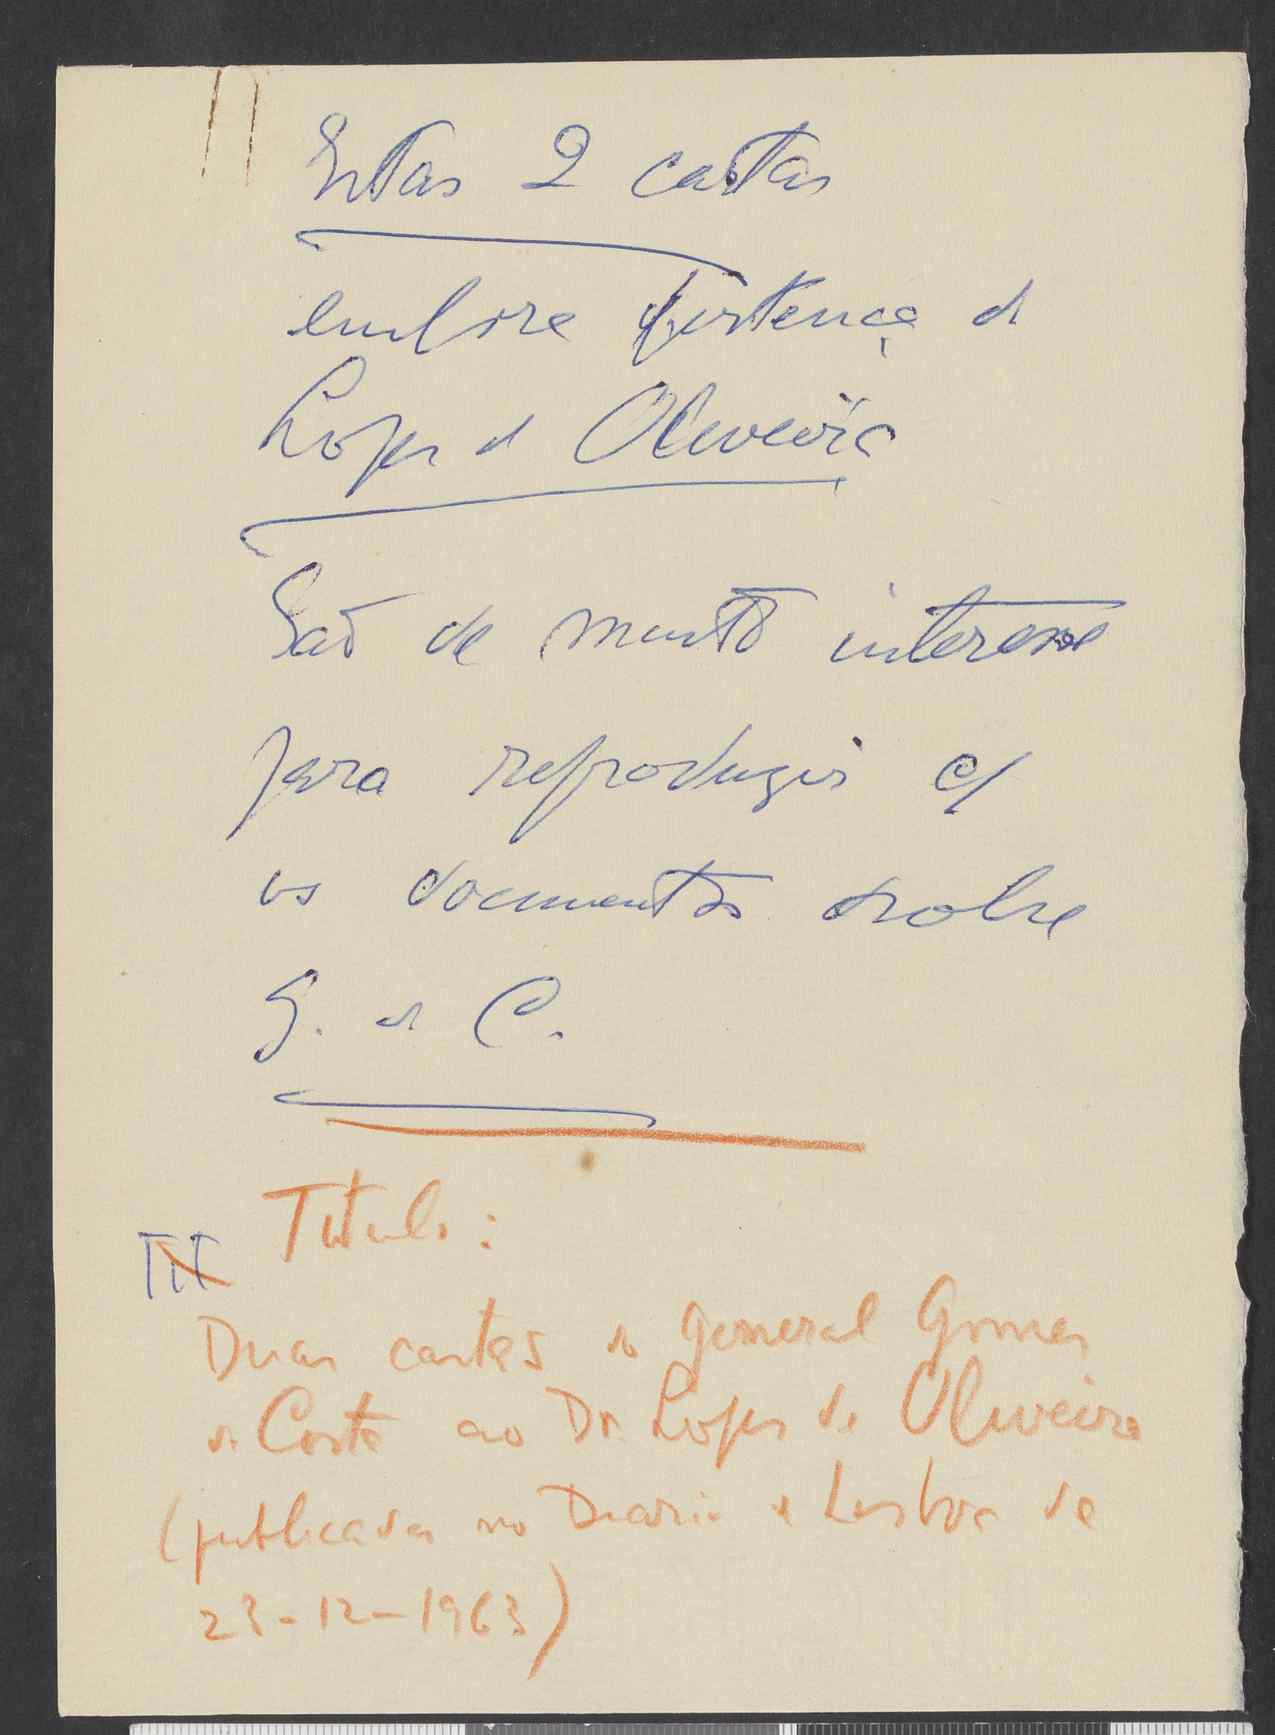 Estas 2 cartas
embora pertença d
Lopes d Oliveira
São de muito interesse
para reproduzir c/
os documentos sobre
G. d C.
Titulo:
III
Duas cartas do general Gomes
da Costa ao Dr. Lopes de Oliveira
(publicadas no Diario de Lisboa de
23-12-1963)